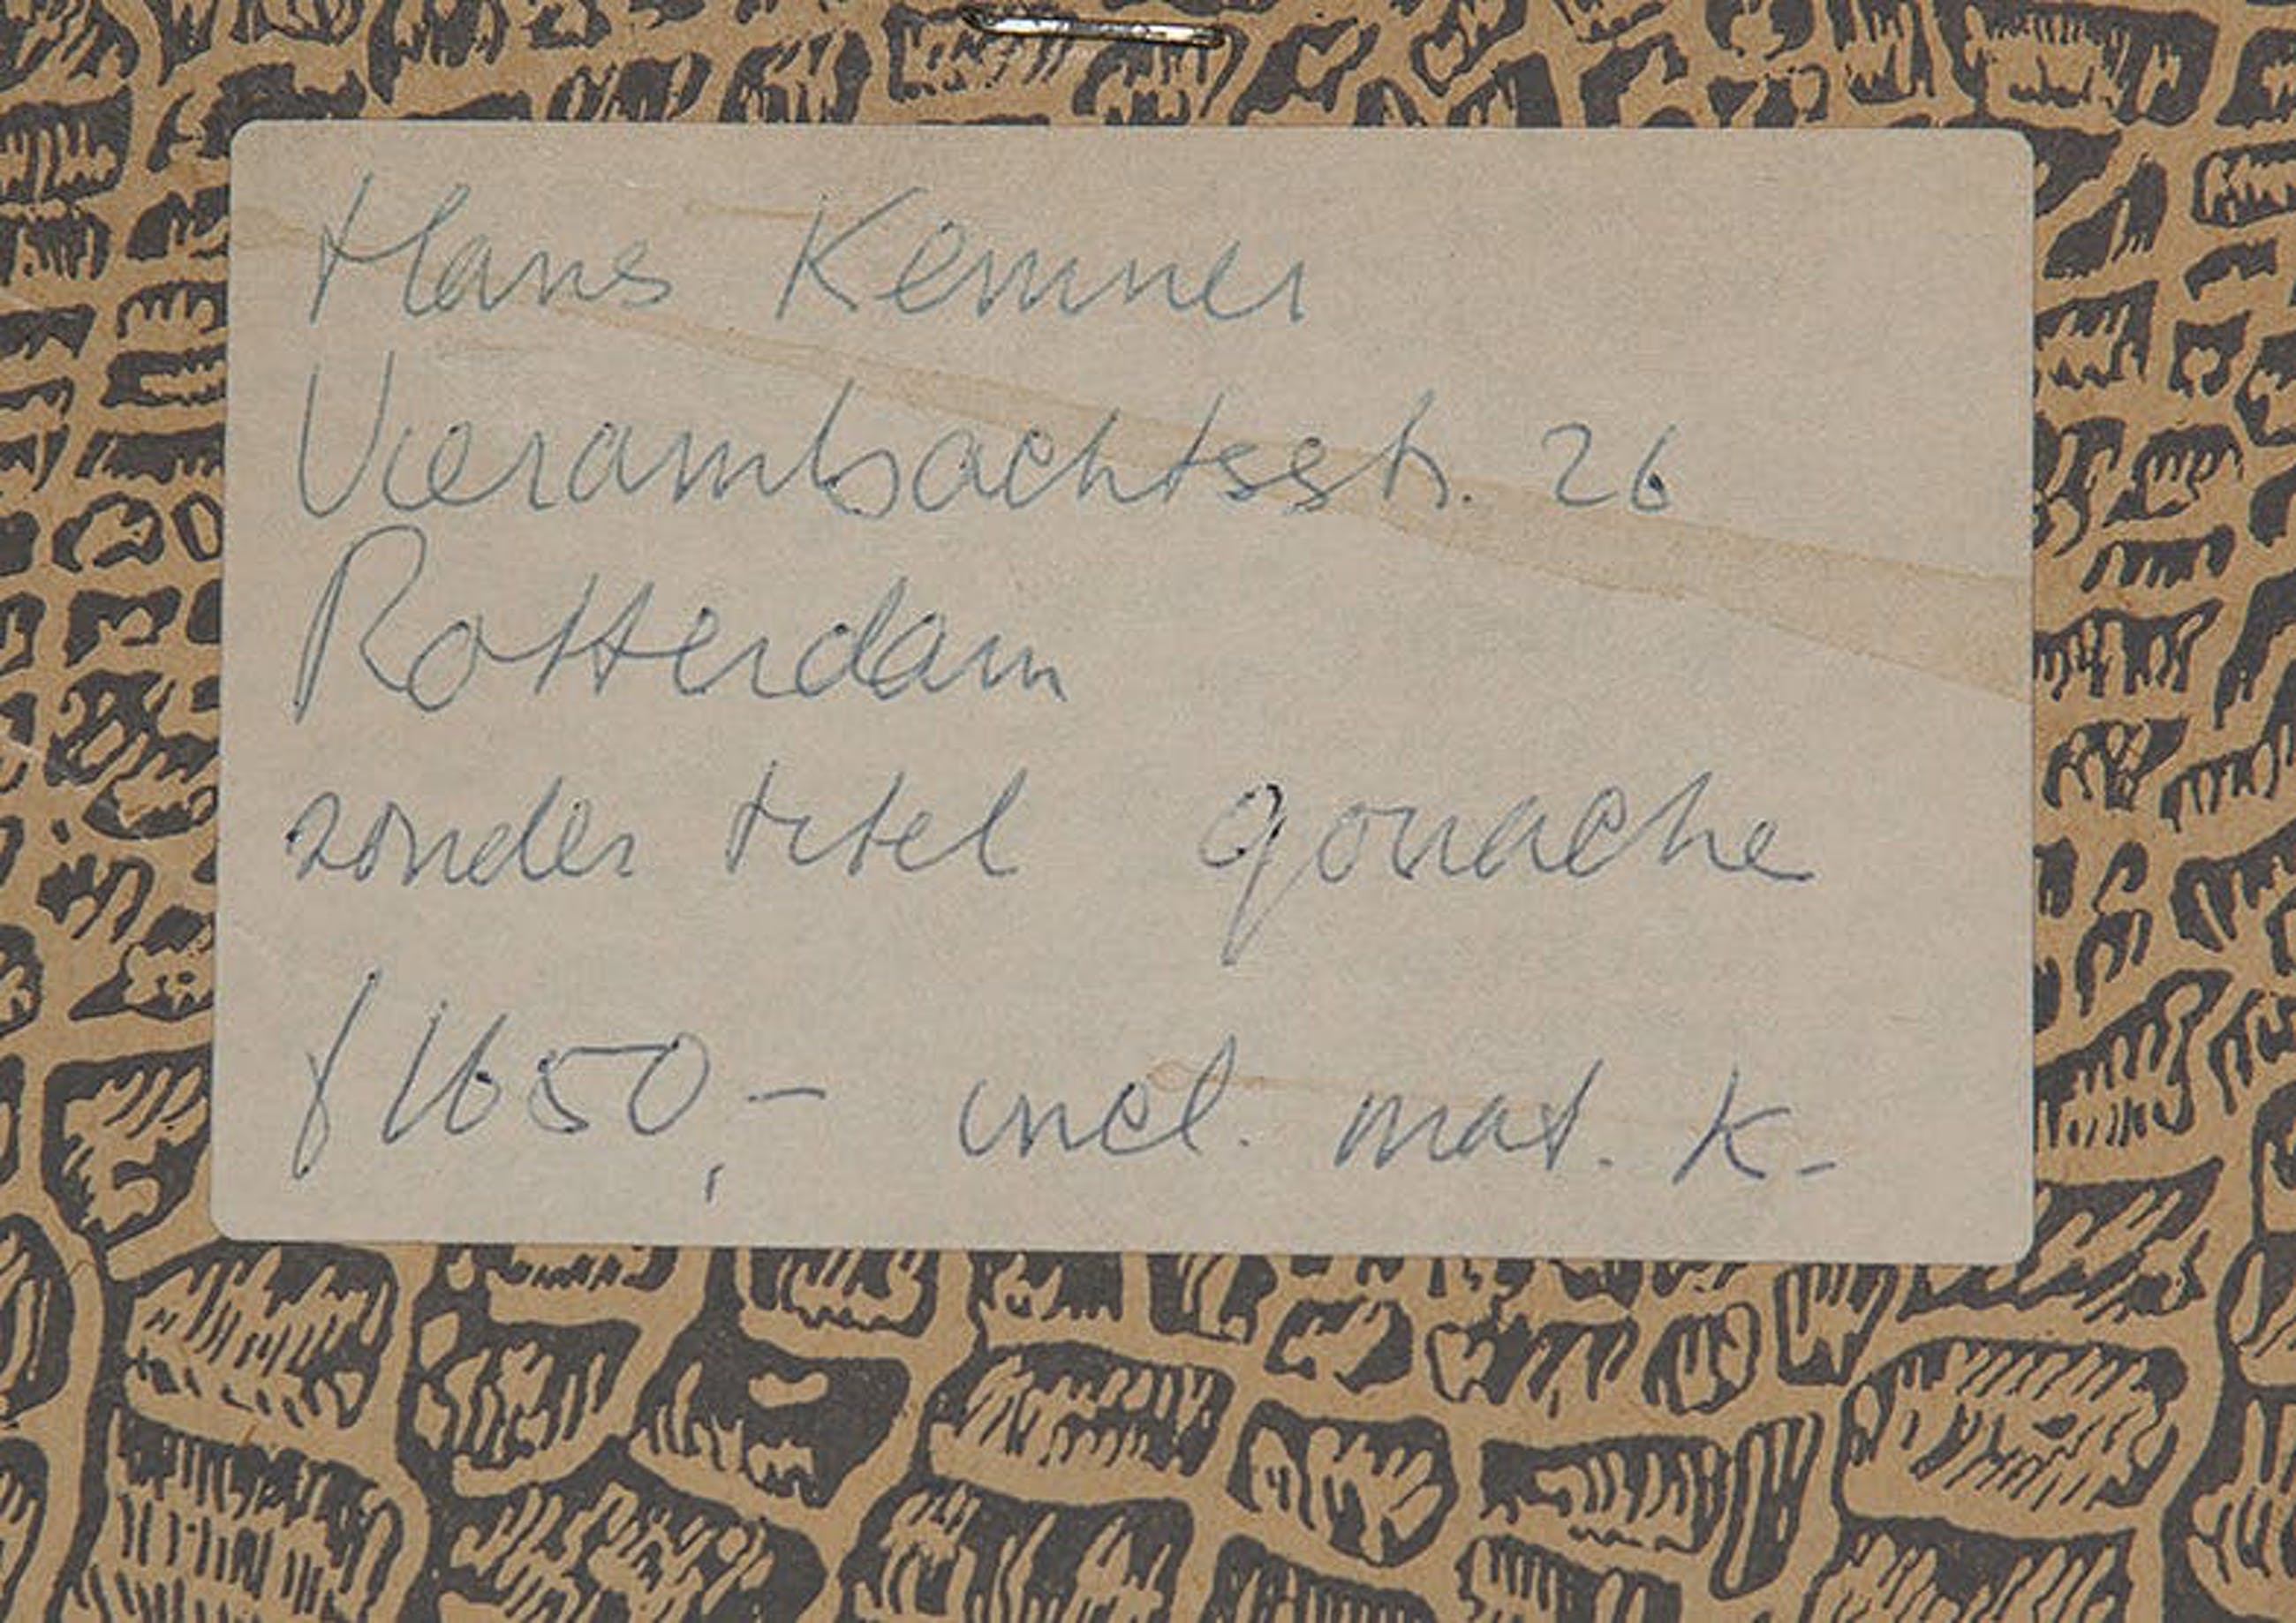 Hans Kemmer
Vierambachtsstr. 26
Rotterdam
zonder titel gouache
f 1650,- incl. mat. k.